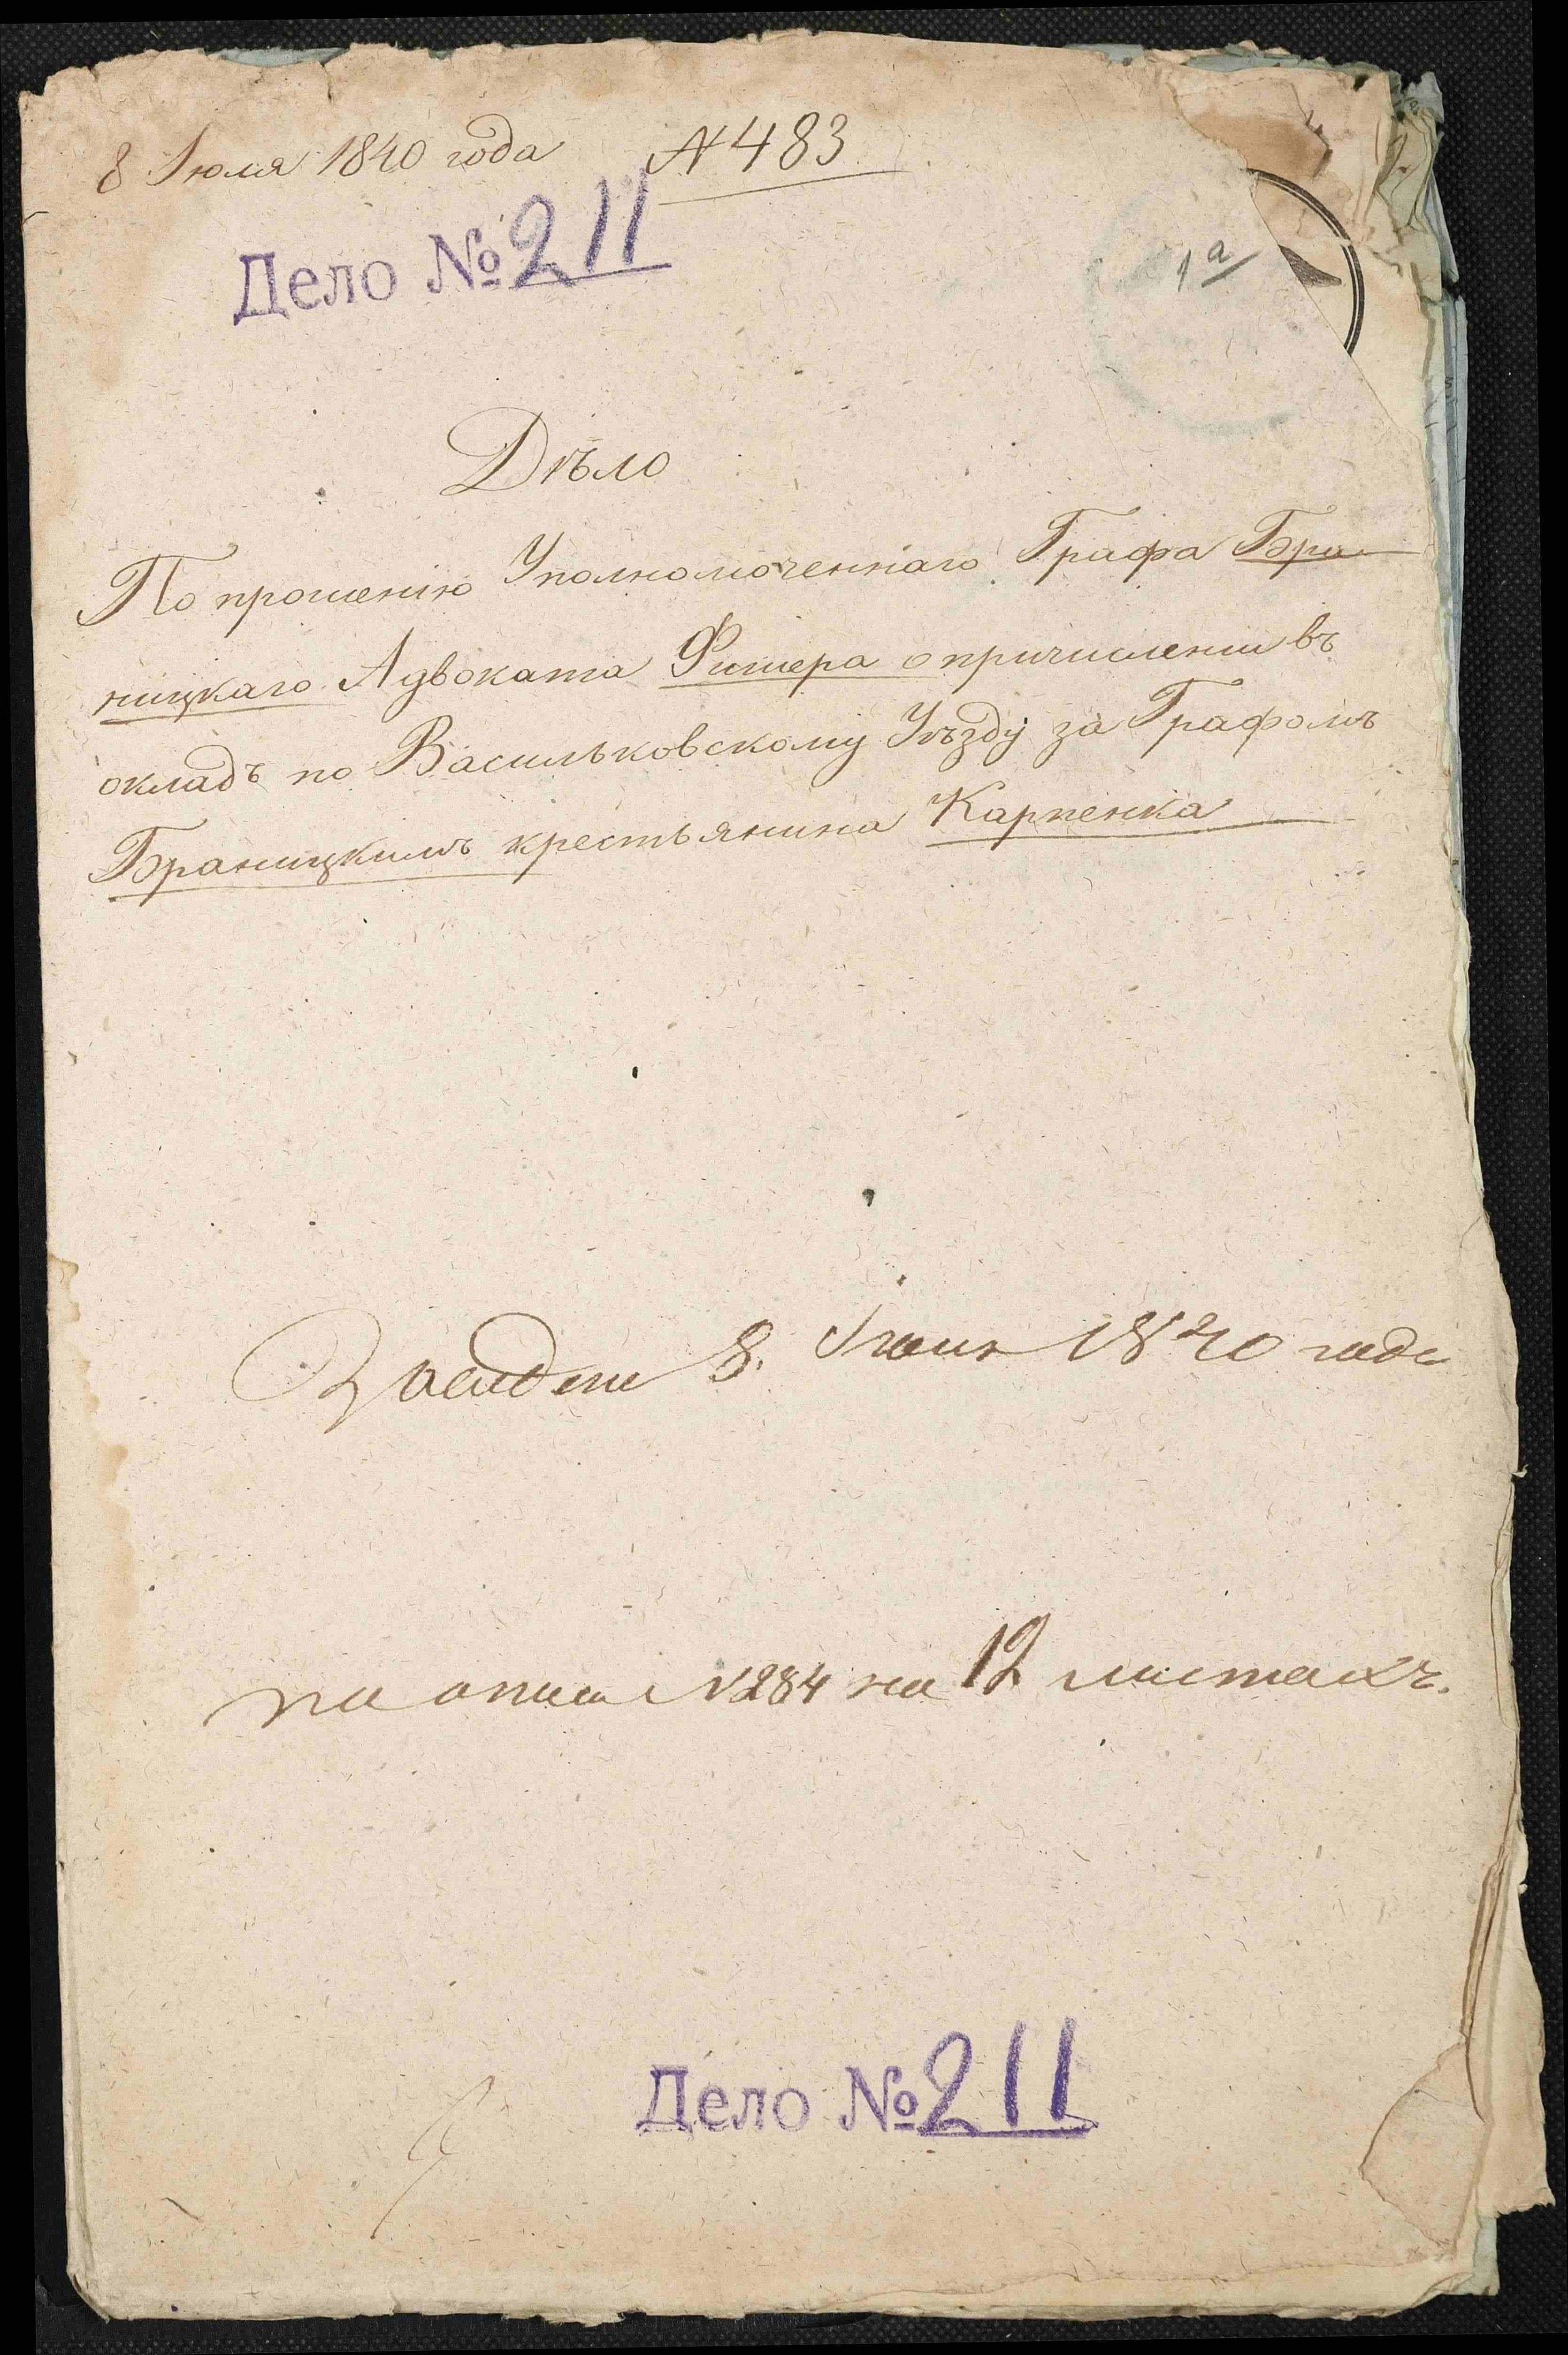 8 Июля 1840 года № 483
Дело № 211
1а
Дѣло
По прошенію Уполномоченнаго Графа Бра-
ницкаго Адвоката Фишера о причислении въ
окладъ по Васильковскому Уѣзду за Графомъ
Браницкимъ крестьянина Карпенка
8. 1840 года
по описи №284 на 12 листахъ.
Дело № 211